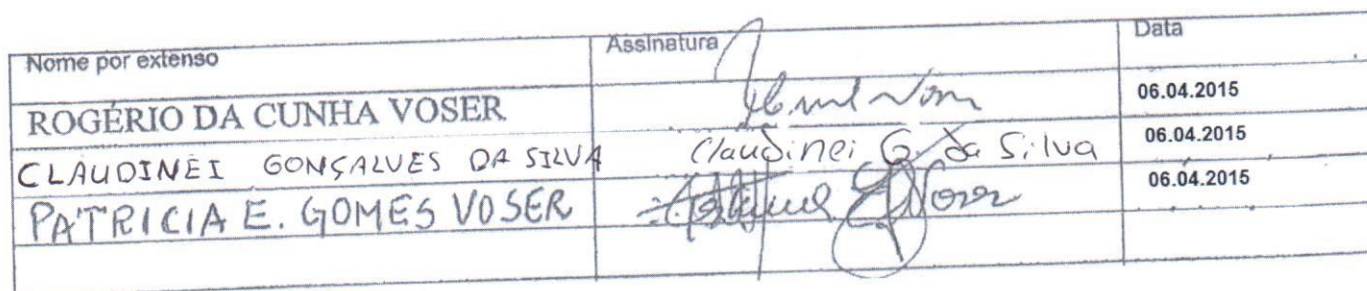 Nome por extenso Assinatura Data
ROGÉRIO DA CUNHA VOSER 06.04.2015
CLAUDINEI GONÇALVES DA SILVA Claudinei G. da Silva 06.04.2015
PATRICIA E. GOMES VOSER 06.04.2015